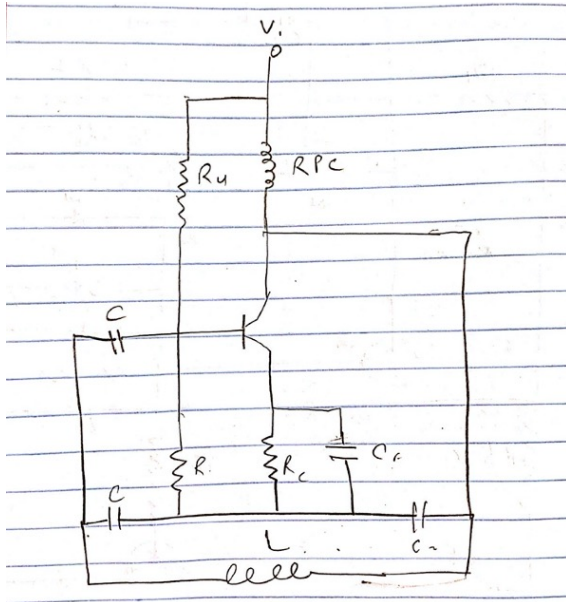 Vi
Ru RPC
C
R. Rc Cc
C
L
C